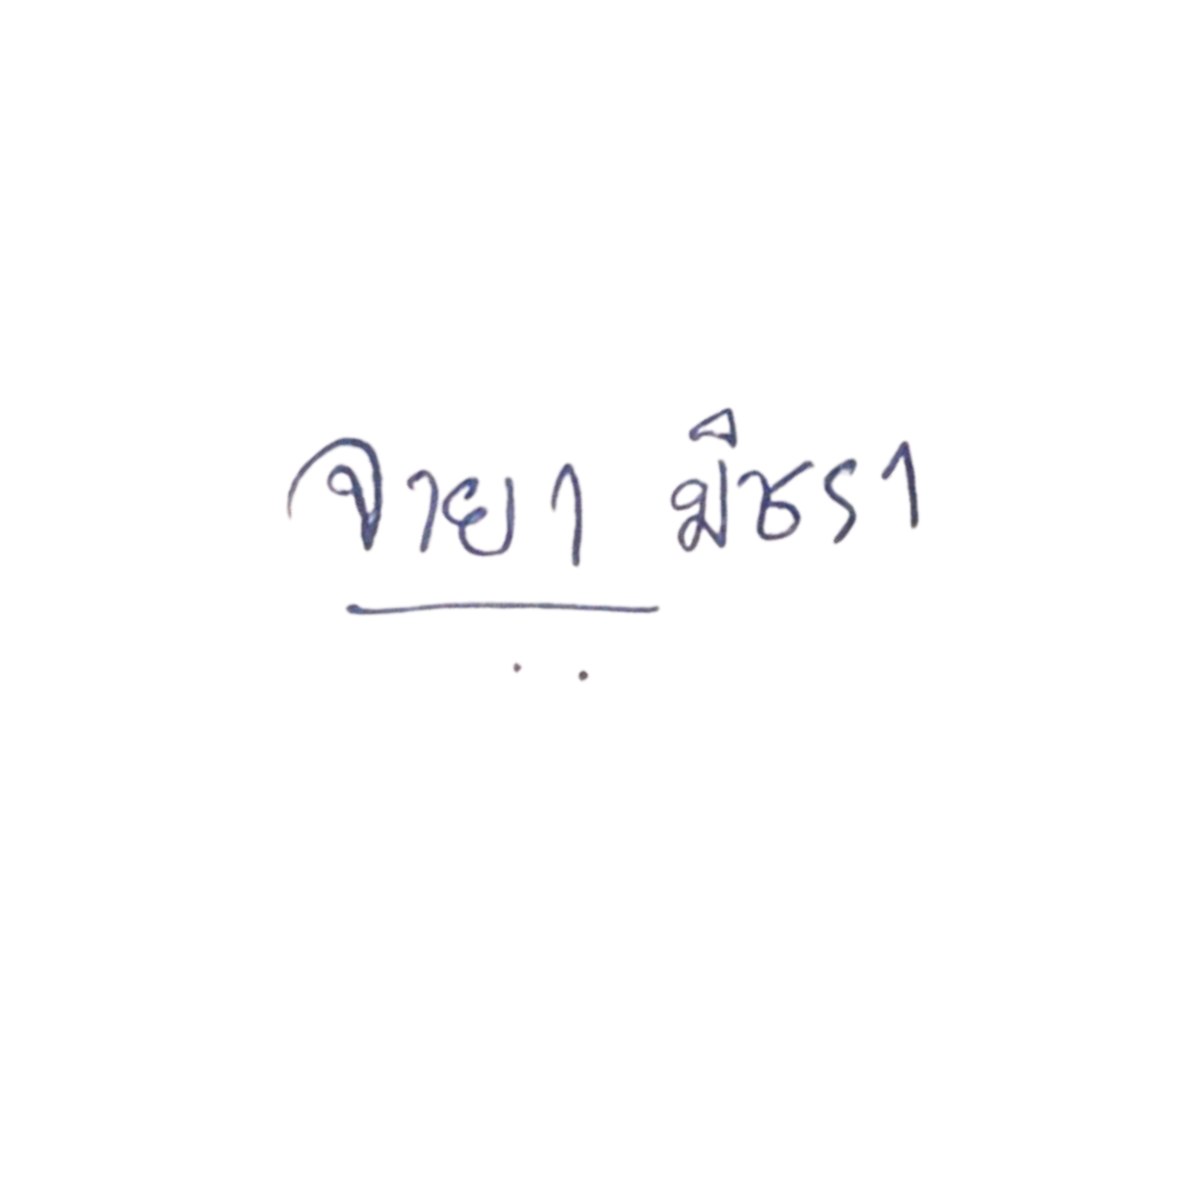 จายา มีชรา